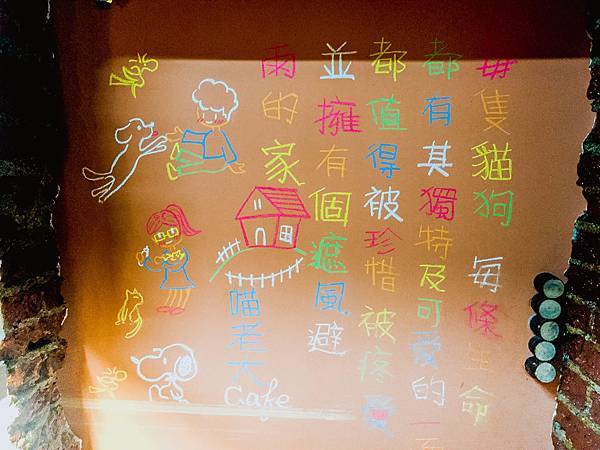 每隻貓狗 每條生命
都有其獨特及可愛的一
都值得被珍惜被疼愛
並擁有個遮風避
雨的家
喵老大
Cafe